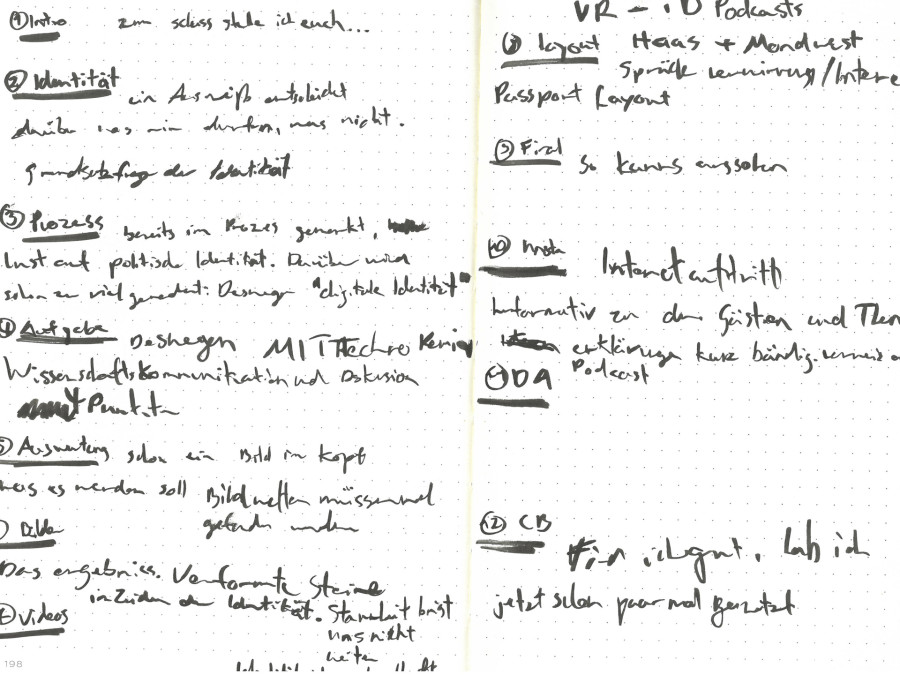 ① Intro zum schluss stelle ich euch...
② Identität
ein Ausweiß entscheidet
darüber was wir dürfen, was nicht.
grundsatzfrage der Identität
③ Prozess bereits im Prozes gemerkt,
lust auf politische Identität. Darüber wird
schon zu viel geredet: Deswegen "digitale Identität"
④ Aufgabe Deswegen MIT Techno Review
Wissenschaftskommunikation und Diskusion
⑤ Auswertung schon ein Bild im kopf
was es werden soll Bildwelten müssen mal
gefunden werden
Bilder
Das ergebniss. Verformte Steine
in Zeiten der Identität. Starrheit bringt
uns nicht
weiter
Videos
198
VR - ID Podcasts
⑧ Layout Haas + Mondwest
Sprache verwirrung/Intere
Passport Layout
⑨ Final so kanns aussehen
⑩ Insta Internetauftritt
Informativ zu den Gästen und Them
erklärungen kurz bündig. verweis a
Podcast
⑪ DA
⑫ CB
Fin ichgut. hab ich
jetzt schon paar mal benutzt